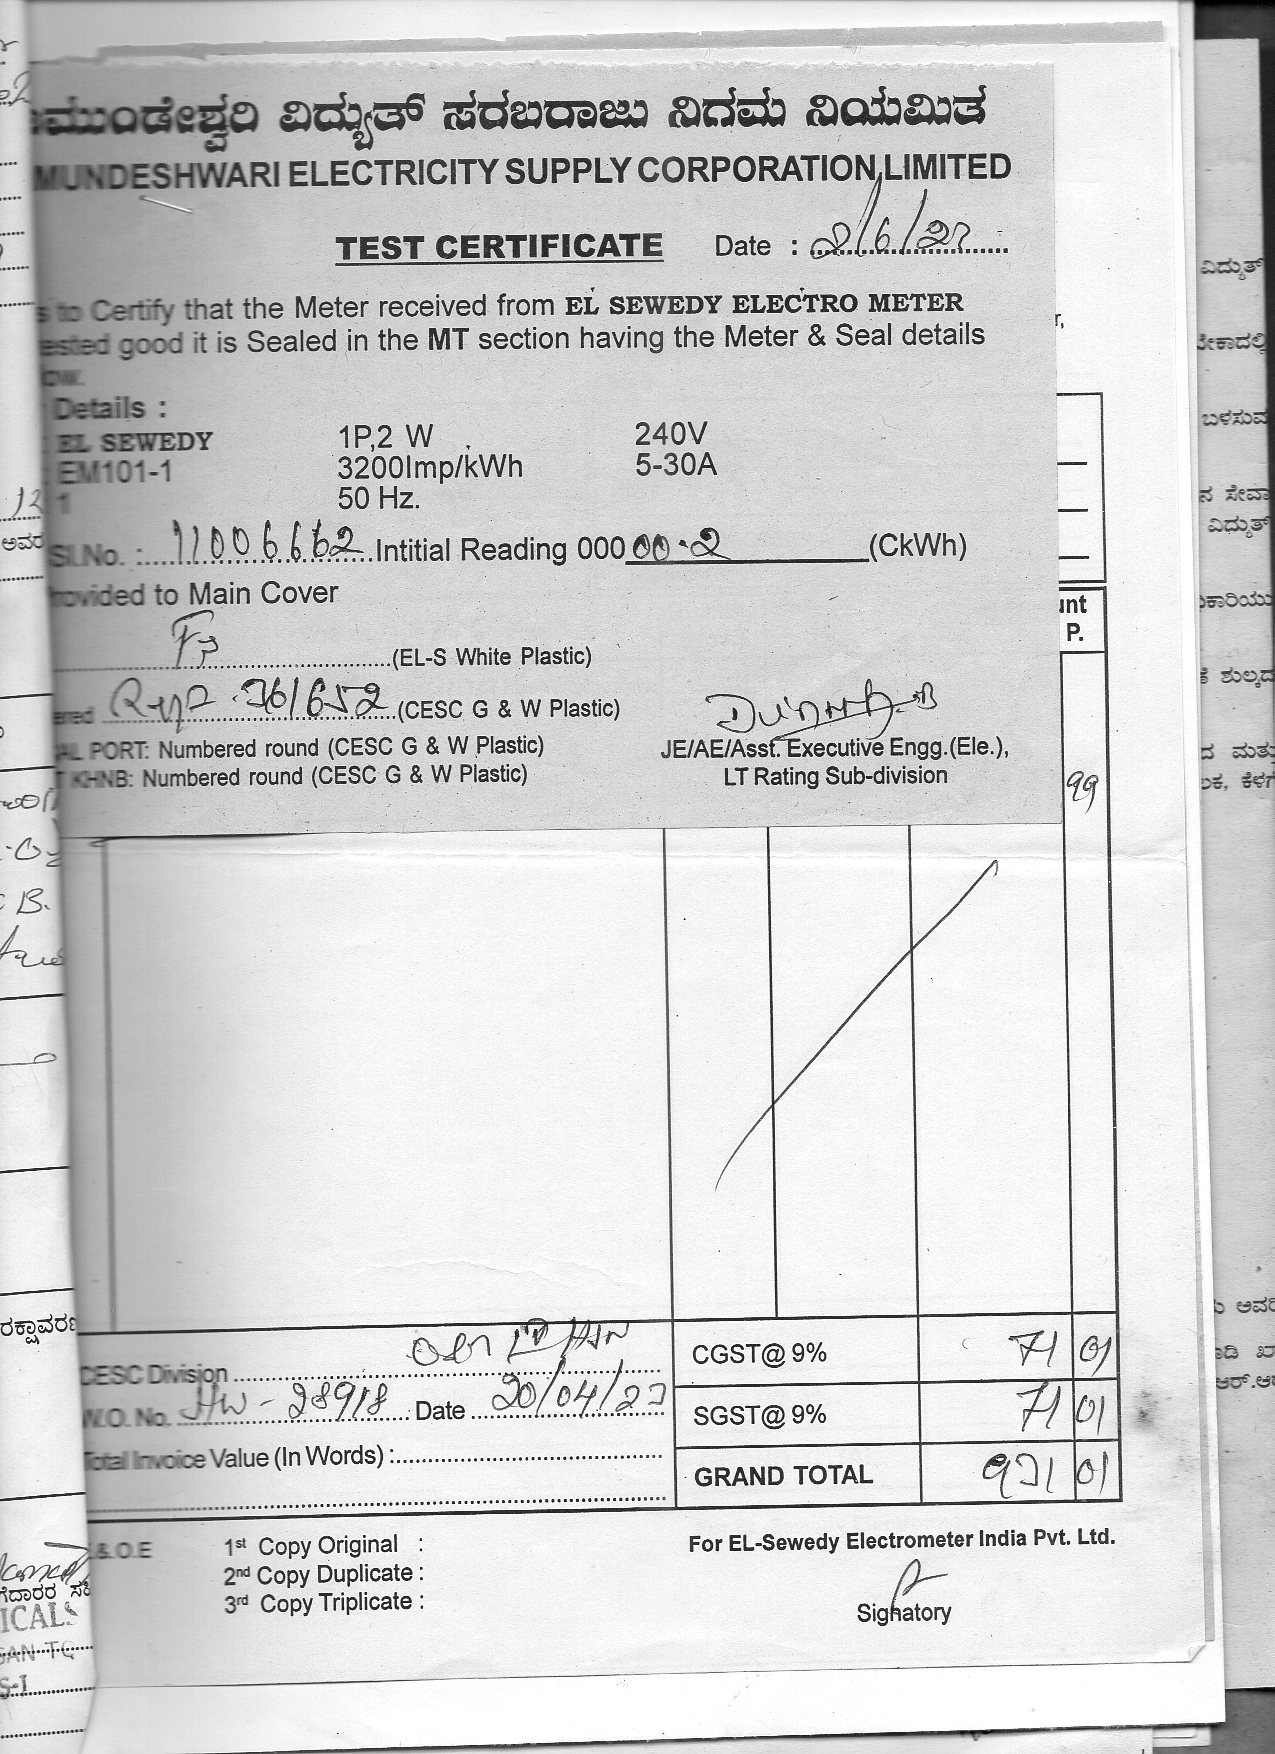 ಮುಂಡೇಶ್ವರಿ ವಿದ್ಯುತ್ ಸರಬರಾಜು ನಿಗಮ ನಿಯಮಿತ
MUNDESHWARI ELECTRICITY SUPPLY CORPORATION LIMITED
TEST CERTIFICATE Date :
s to Certify that the Meter received from EL SEWEDY ELECTRO METER
ested good it is Sealed in the MT section having the Meter & Seal details
ow.
Details :
EL SEWEDY 1P,2 W 240V
EM101-1 3200Imp/kWh 5-30A
1 50 Hz.
Sl.No. : 11006662 Intitial Reading 000 00.2 (CkWh)
rovided to Main Cover
(EL-S White Plastic)
ered 361652 (CESC G & W Plastic)
AL PORT: Numbered round (CESC G & W Plastic) JE/AE/Asst. Executive Engg.(Ele.),
T KHNB: Numbered round (CESC G & W Plastic) LT Rating Sub-division
unt
P.
99
CESC Division CGST@ 9% 71 01
W.O. No. HW-28918 Date 20/04/22 SGST@ 9% 71 01
Total Invoice Value (In Words) : GRAND TOTAL 931 01
& O.E 1st Copy Original : For EL-Sewedy Electrometer India Pvt. Ltd.
2nd Copy Duplicate :
3rd Copy Triplicate : Signatory
ವಿದ್ಯುತ್
ಬಳಸುವ
ನ ಸೇವಾ
ವಿದ್ಯುತ್
ದ ಮತ್ತು
ICALS
S-I